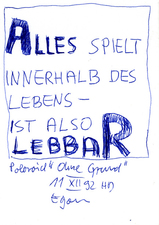 ALLES SPIELT
INNERHALB DES
LEBENS –
IST ALSO
LEBBAR
Poloroid "Ohne Grund"
11 XII 92 HD
Egon